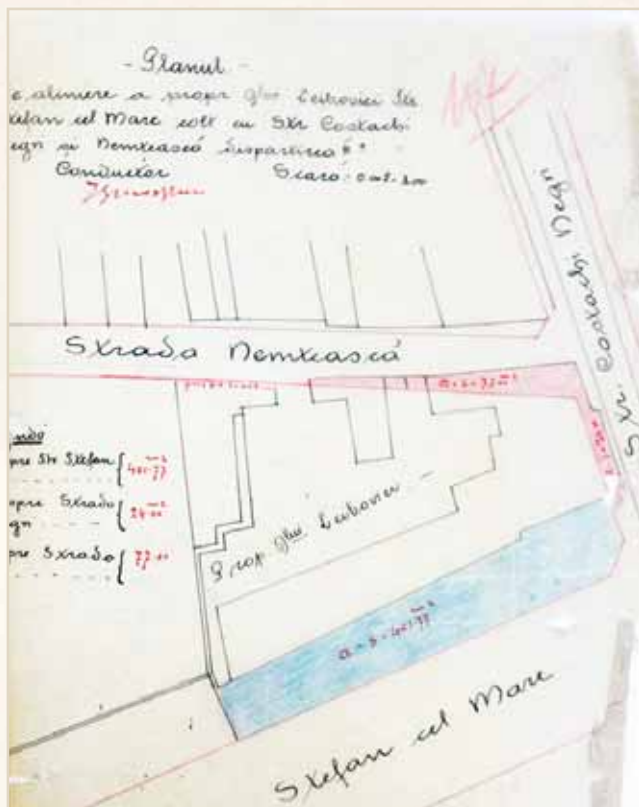 - Planul -
e aliniere a propr glui Leibovici Str
tefan cel Mare colt cu Str Costachi
egri si Nemtească
Conductor Scara
107
Strada Nemtească
Str. Costachi Negri
a = s = 77 m²
pre Str Stefan { 401.77 m²
pre Strada { 24.00 m²
gri
pre Strada { 77.00
Prop glui Leibovici
a = s = 401.77 m²
Stefan cel Mare